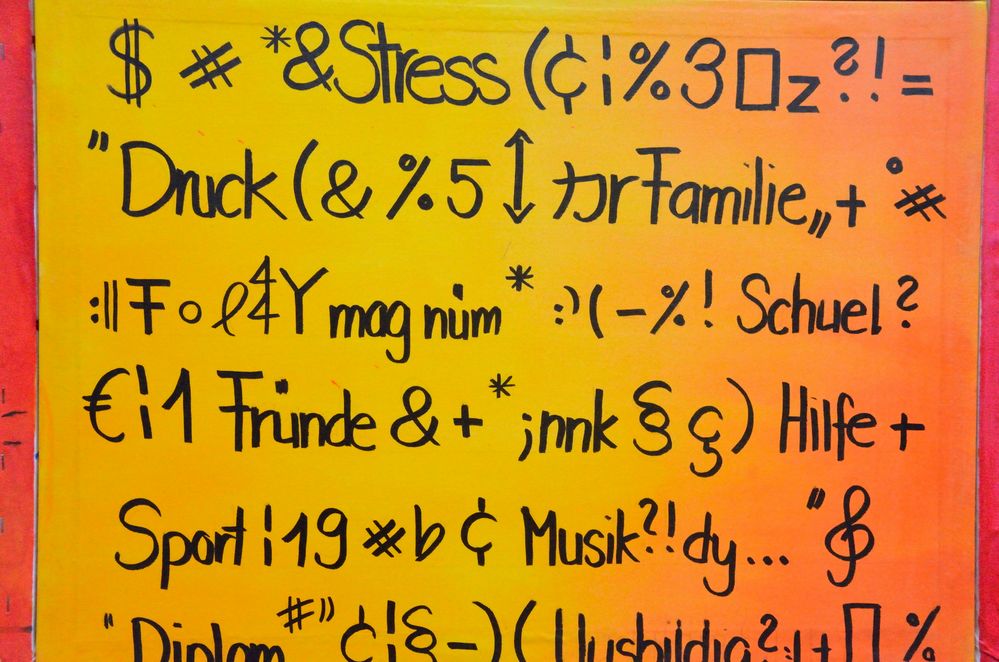 $ # *&Stress (¢¦%3□z?!=
"Druck (& %5↕ カr Familie„+ °#
:||Ŧ○ℓ4Y mag nüm* :')(-%! Schuel?
€¦1 Fründe &+*;nnk § ç) Hilfe +
Sport ¦19 #b ¢ Musik?! dy... "𝄞
"Diplom #" ¢¦§-)( Uusbildig?:|+□%